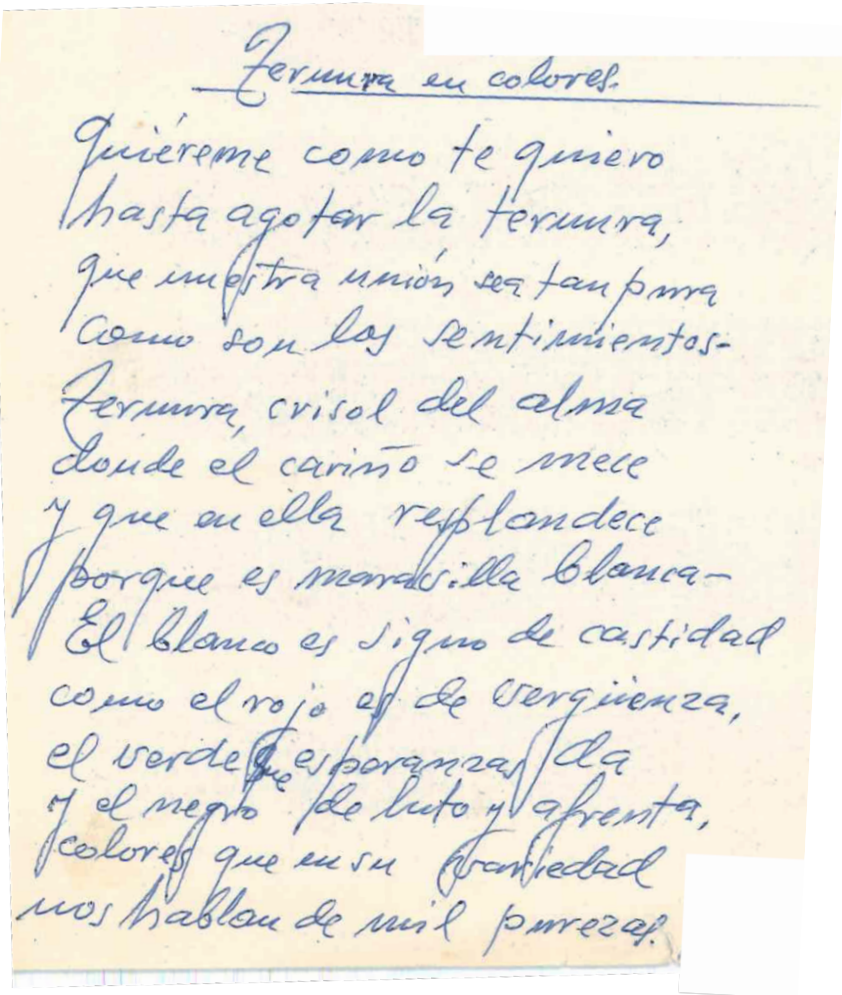 Ternura en colores.
Quiéreme como te quiero
hasta agotar la ternura,
que nuestra unión sea tan pura
como son los sentimientos-
Ternura, crisol del alma
donde el cariño se mece
y que en ella resplandece
porque es maravilla blanca-
El blanco es signo de castidad
como el rojo es de vergüenza,
el verde que esperanzas da
y el negro de luto y afrenta,
colores que en su variedad
nos hablan de mil purezas.